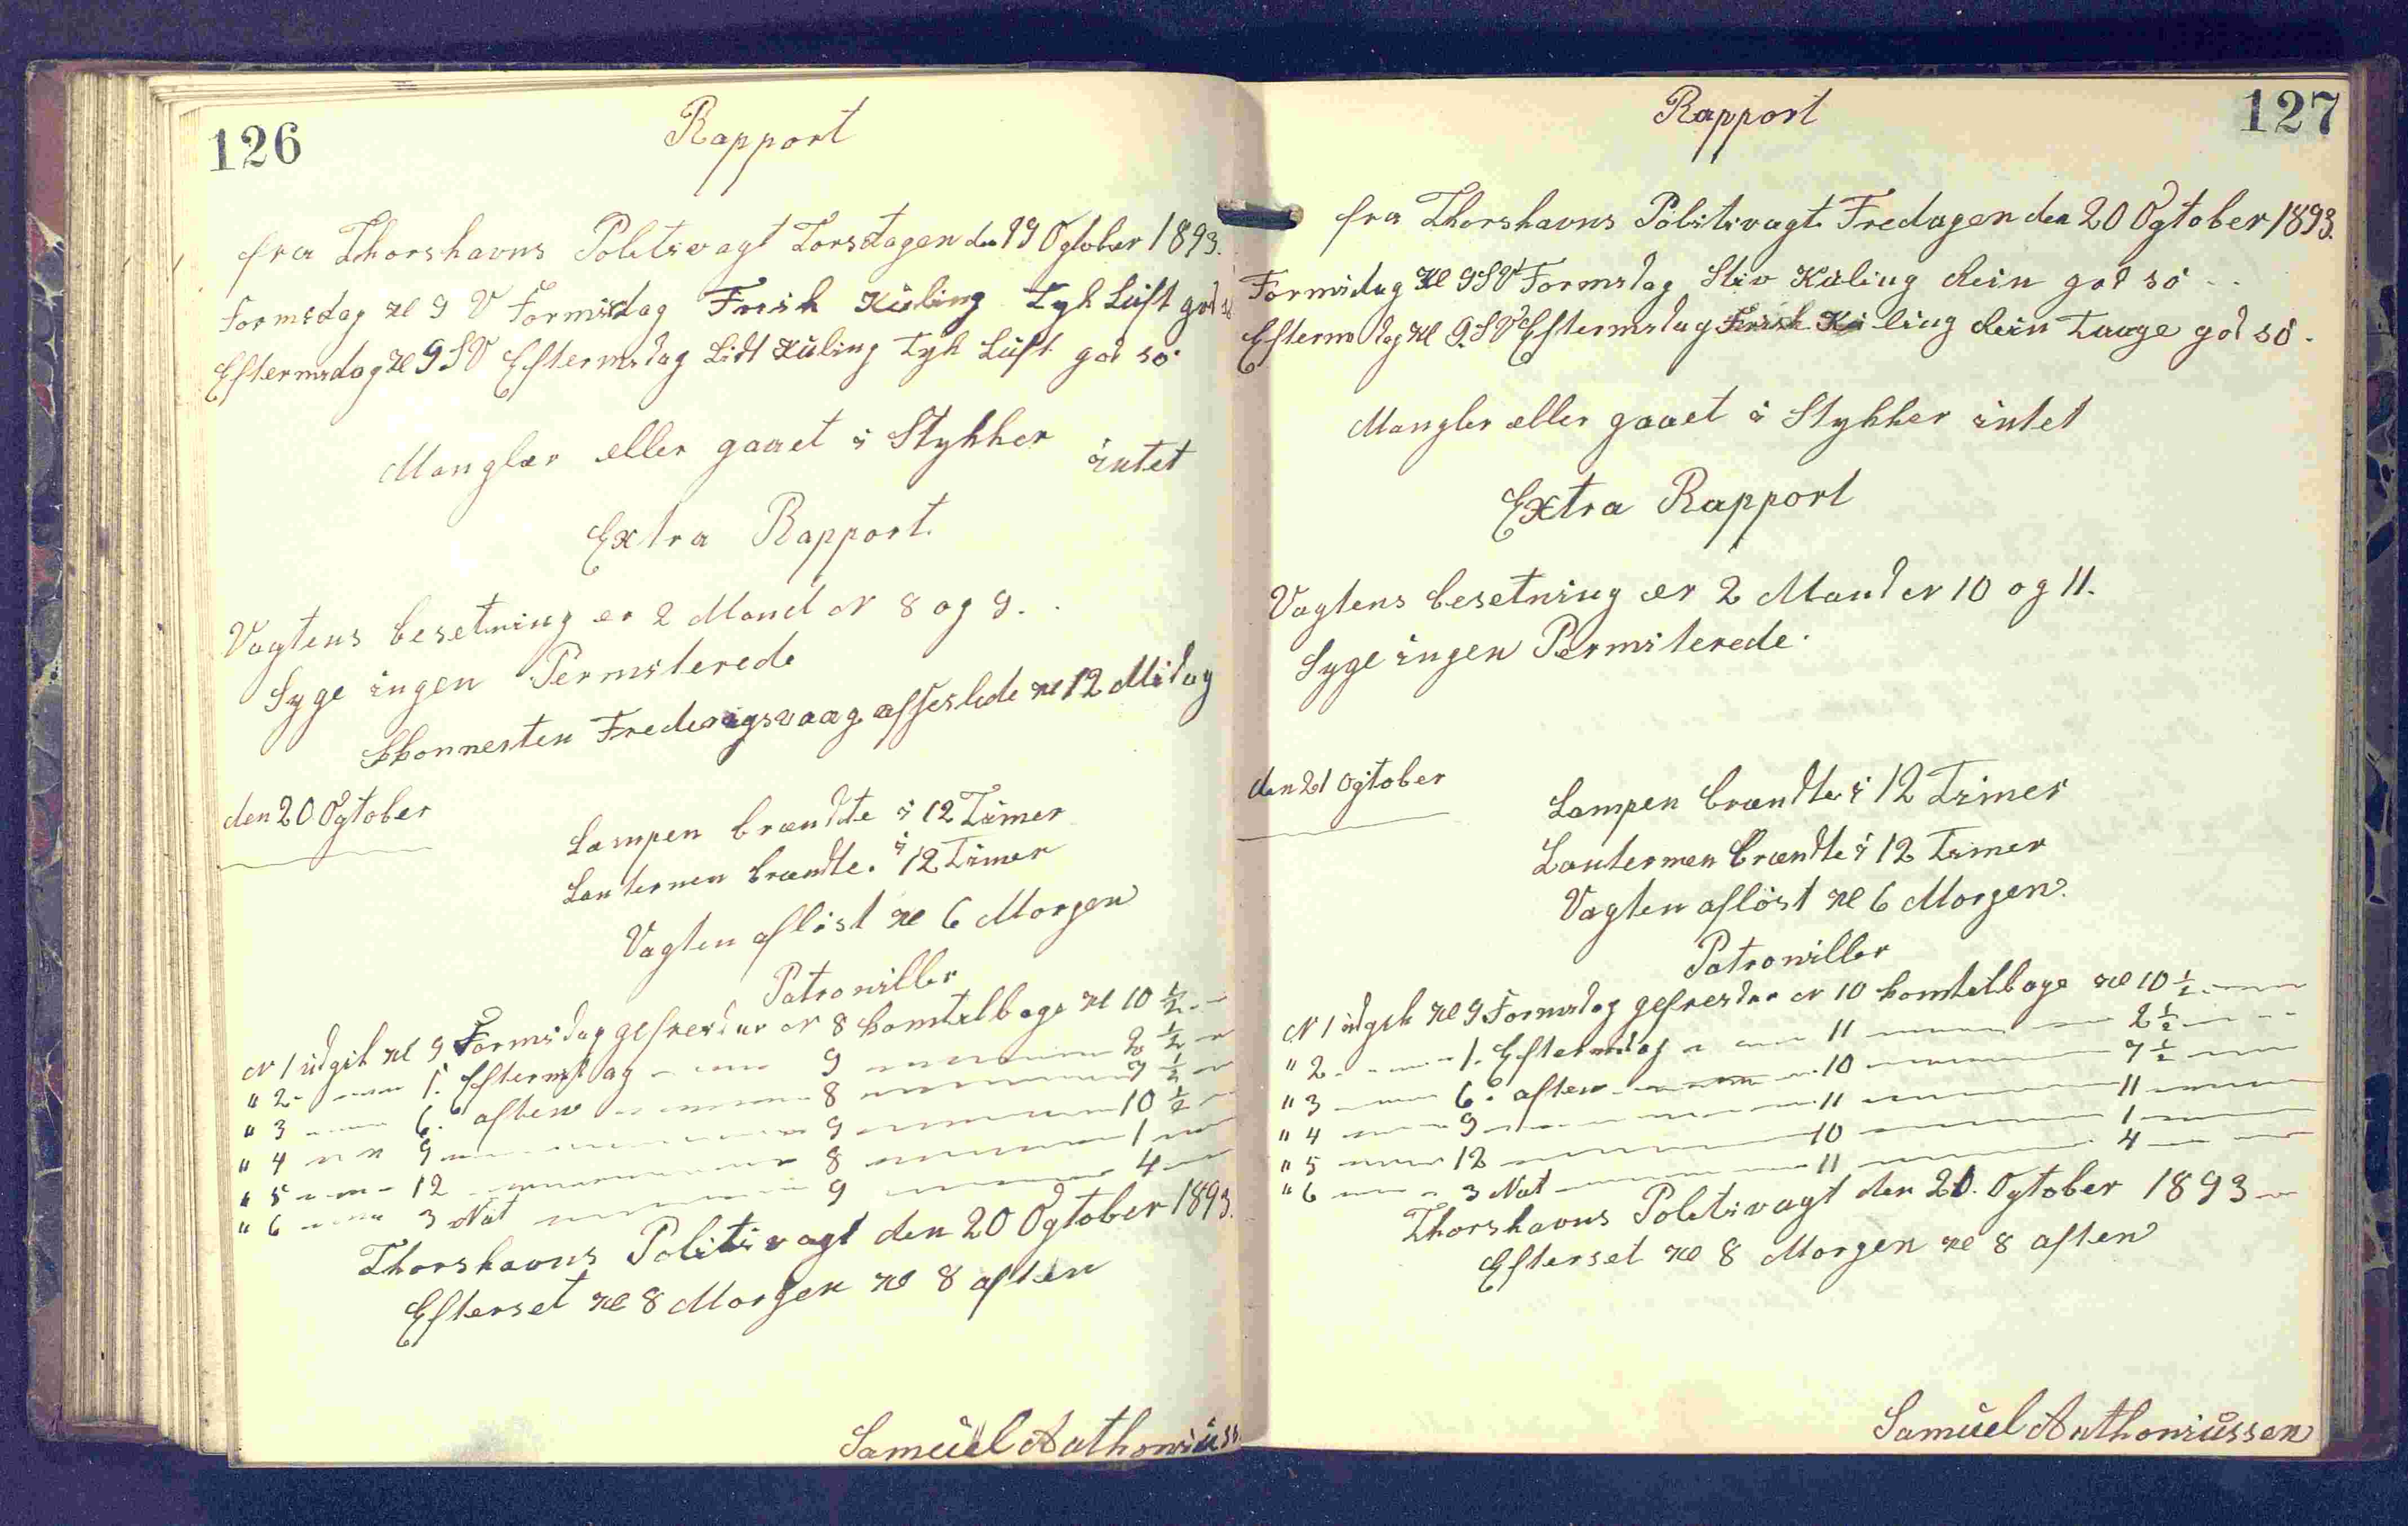 126
Rapport
fra Thorshavns Politivagt Torsdagen den 19 Ogtober 1893.
Formidag Kl 9 V Formidag Frisk Kuling Tyk Luft god sö
Eftermidag Kl 9 SV Eftermidag Lidt Kuling Tyk Luft god sö
Mangler eller gaaet i Stykker intet
Extra Rapport.
Vagtens besetning er 2 Mand N 8 og 9.
Syge ingen Permiterede
Skonnerten Frederigsvaag afseslede Kl 12 Midag
den 20 Ogtober
Lampen brændte i 12 Timer
Lanternen brændte i 12 Timer
Vagten aflöst Kl 6 Morgen
Patrouiller
N 1 udgik Kl 9 Formidag gefreider N 8 komtilbage Kl 10 ½
" 2 1. Eftermidag 9 2 ½
" 3 6. aften 8 7 ½
" 4 9 9 10 ½
" 5 12 8 1
" 6 3 Nat 9 4
Thorshavns Politivagt den 20 Ogtober 1893.
Efterset Kl 8 Morgen Kl 8 aften
Samuel Anthoniuss
127
Rapport
fra Thorshavns Politivagt Fredagen den 20 Ogtober 1893.
Formidag Kl 9 SV Formidag Stiv Kuling Rein god sö
Eftermidag Kl 9. SV Eftermidag Frisk Kuling Rein Taage god sö.
Mangler eller gaaet i Stykker intet
Extra Rapport
Vagtens besetning er 2 Mand N 10 og 11.
Syge ingen Permiterede.
den 21 Ogtober
Lampen brændte i 12 Timer
Lanternen brændte i 12 Timer
Vagten aflöst Kl 6 Morgen.
Patrouiller
N 1 udgik Kl 9 Formidag gefreider N 10 komtilbage Kl 10 ½
" 2 1. Eftermidag 11 2 ½
" 3 6. aften 10 7 ½
" 4 9 11 11
" 5 12 10 1
" 6 3 Nat 11 4
Thorshavns Politivagt den 21. Ogtober 1893
Efterset Kl 8 Morgen Kl 8 aften
Samuel Anthoniussen